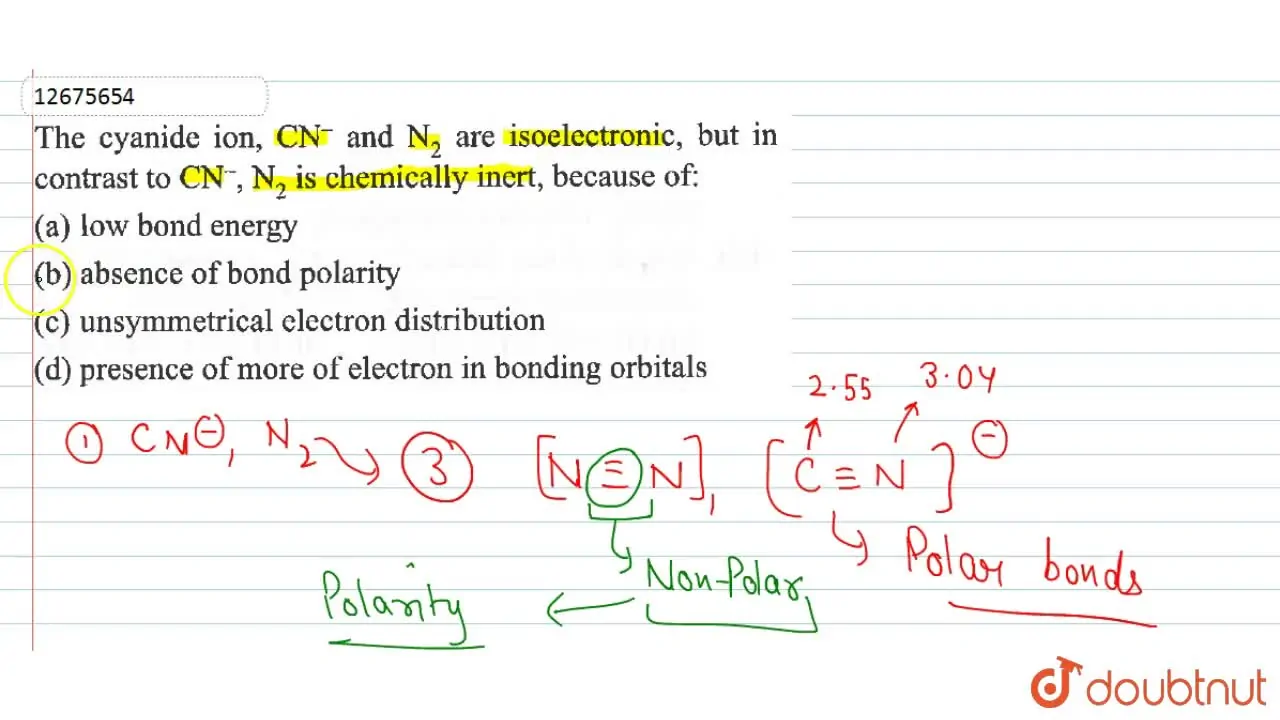 12675654
The cyanide ion, CN⁻ and N₂ are isoelectronic, but in
contrast to CN⁻, N₂ is chemically inert, because of:
(a) low bond energy
(b) absence of bond polarity
(c) unsymmetrical electron distribution
(d) presence of more of electron in bonding orbitals
2.55 3.04
① CN⊖, N₂ ③ [N≡N], [C≡N]⊖
Polar bonds
Non-Polar
Polarity
doubtnut